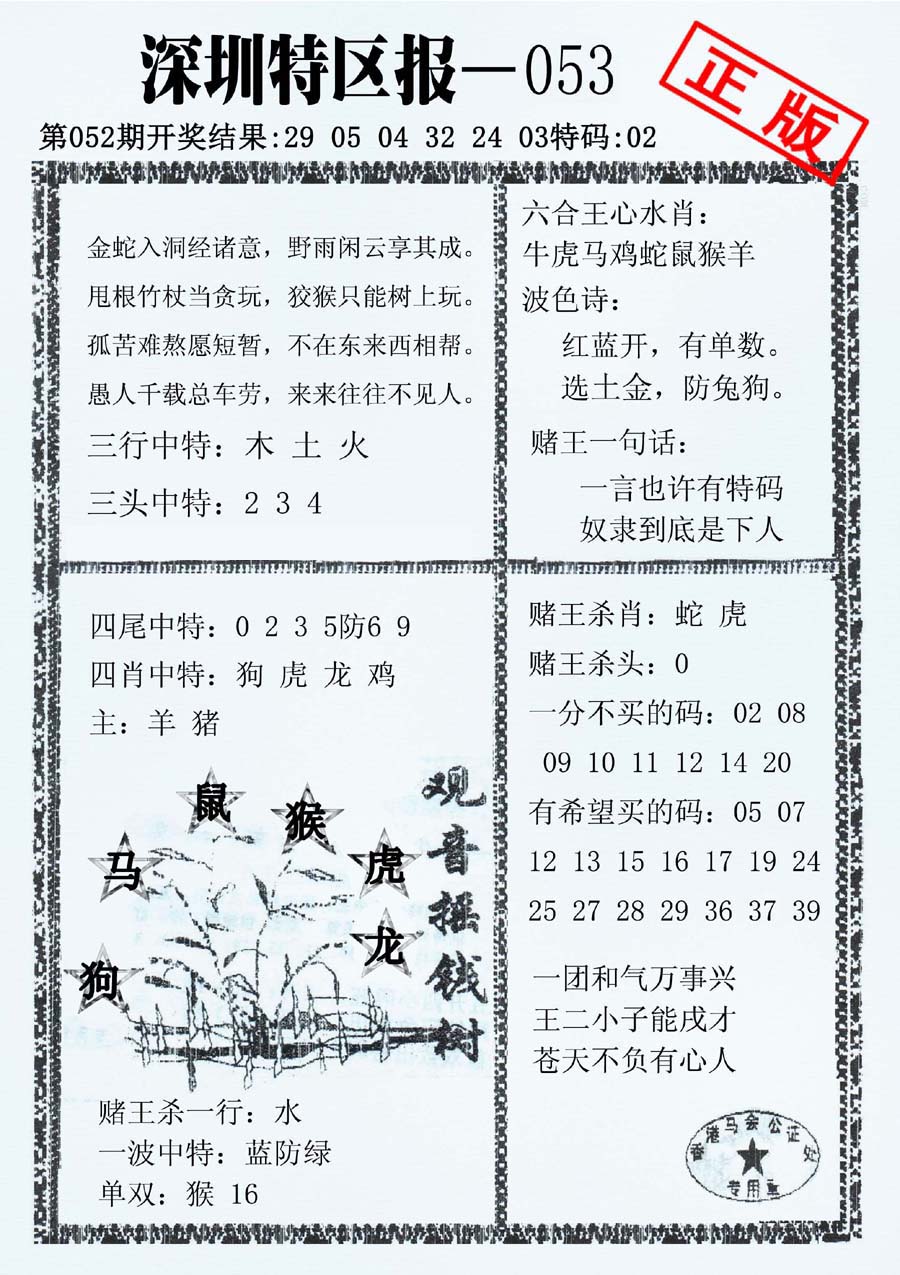 深圳特区报—053
正版
第052期开奖结果:29 05 04 32 24 03特码:02
金蛇入洞经诸意，野雨闲云享其成。
甩根竹杖当贪玩，狡猴只能树上玩。
孤苦难熬愿短暂，不在东来西相帮。
愚人千载总车劳，来来往往不见人。
三行中特：木 土 火
三头中特：2 3 4
六合王心水肖：
牛虎马鸡蛇鼠猴羊
波色诗：
红蓝开，有单数。
选土金，防兔狗。
赌王一句话：
一言也许有特码
奴隶到底是下人
四尾中特：0 2 3 5防6 9
四肖中特：狗 虎 龙 鸡
主：羊 猪
鼠
猴
马
虎
龙
狗
观音摇钱树
赌王杀一行：水
一波中特：蓝防绿
单双：猴 16
赌王杀肖：蛇 虎
赌王杀头：0
一分不买的码：02 08
09 10 11 12 14 20
有希望买的码：05 07
12 13 15 16 17 19 24
25 27 28 29 36 37 39
一团和气万事兴
王二小子能戌才
苍天不负有心人
香港马会公证处
专用章